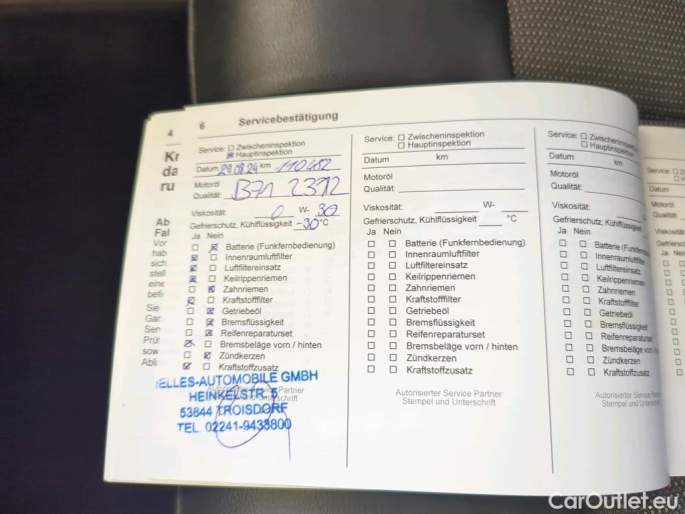 4
Kr
da
ru
Ab
Fal
Vor
hab
sich
stell
eine
befi
Sie
Gar
Ser
Prüf
sow
Abli
6 Servicebestätigung
Service: ☐ Zwischeninspektion
☒ Hauptinspektion
Datum 29.08.24 km 110482
Motoröl
Qualität: B71 2312
Viskosität: 0 W- 30
Gefrierschutz, Kühlflüssigkeit -30 °C
Ja Nein
☐ ☒ Batterie (Funkfernbedienung)
☒ ☐ Innenraumluftfilter
☒ ☐ Luftfiltereinsatz
☒ ☐ Keilrippenriemen
☐ ☒ Zahnriemen
☒ ☐ Kraftstofffilter
☐ ☒ Getriebeöl
☐ ☒ Bremsflüssigkeit
☐ ☒ Reifenreparaturset
☒ ☐ Bremsbeläge vorn / hinten
☐ ☒ Zündkerzen
☒ ☐ Kraftstoffzusatz
ELLES-AUTOMOBILE GMBH
HEINKELSTR. 5
53844 TROISDORF
TEL. 02241-9433800
Service: ☐ Zwischeninspektion
☐ Hauptinspektion
Datum km
Motoröl
Qualität:
Viskosität: W-
Gefrierschutz, Kühlflüssigkeit °C
Ja Nein
☐ ☐ Batterie (Funkfernbedienung)
☐ ☐ Innenraumluftfilter
☐ ☐ Luftfiltereinsatz
☐ ☐ Keilrippenriemen
☐ ☐ Zahnriemen
☐ ☐ Kraftstofffilter
☐ ☐ Getriebeöl
☐ ☐ Bremsflüssigkeit
☐ ☐ Reifenreparaturset
☐ ☐ Bremsbeläge vorn / hinten
☐ ☐ Zündkerzen
☐ ☐ Kraftstoffzusatz
Autorisierter Service Partner
Stempel und Unterschrift
Service: ☐ Zwischeninspektion
☐ Hauptinspektion
Datum km
Motoröl
Qualität:
Viskosität: W-
Gefrierschutz, Kühlflüssigkeit
Ja Nein
☐ ☐ Batterie (Funkfernbedienung)
☐ ☐ Innenraumluftfilter
☐ ☐ Luftfiltereinsatz
☐ ☐ Keilrippenriemen
☐ ☐ Zahnriemen
☐ ☐ Kraftstofffilter
☐ ☐ Getriebeöl
☐ ☐ Bremsflüssigkeit
☐ ☐ Reifenreparaturset
☐ ☐ Bremsbeläge vorn
☐ ☐ Zündkerzen
☐ ☐ Kraftstoffzusatz
Autorisierter Service
Stempel und Unterschrift
CarOutlet.eu